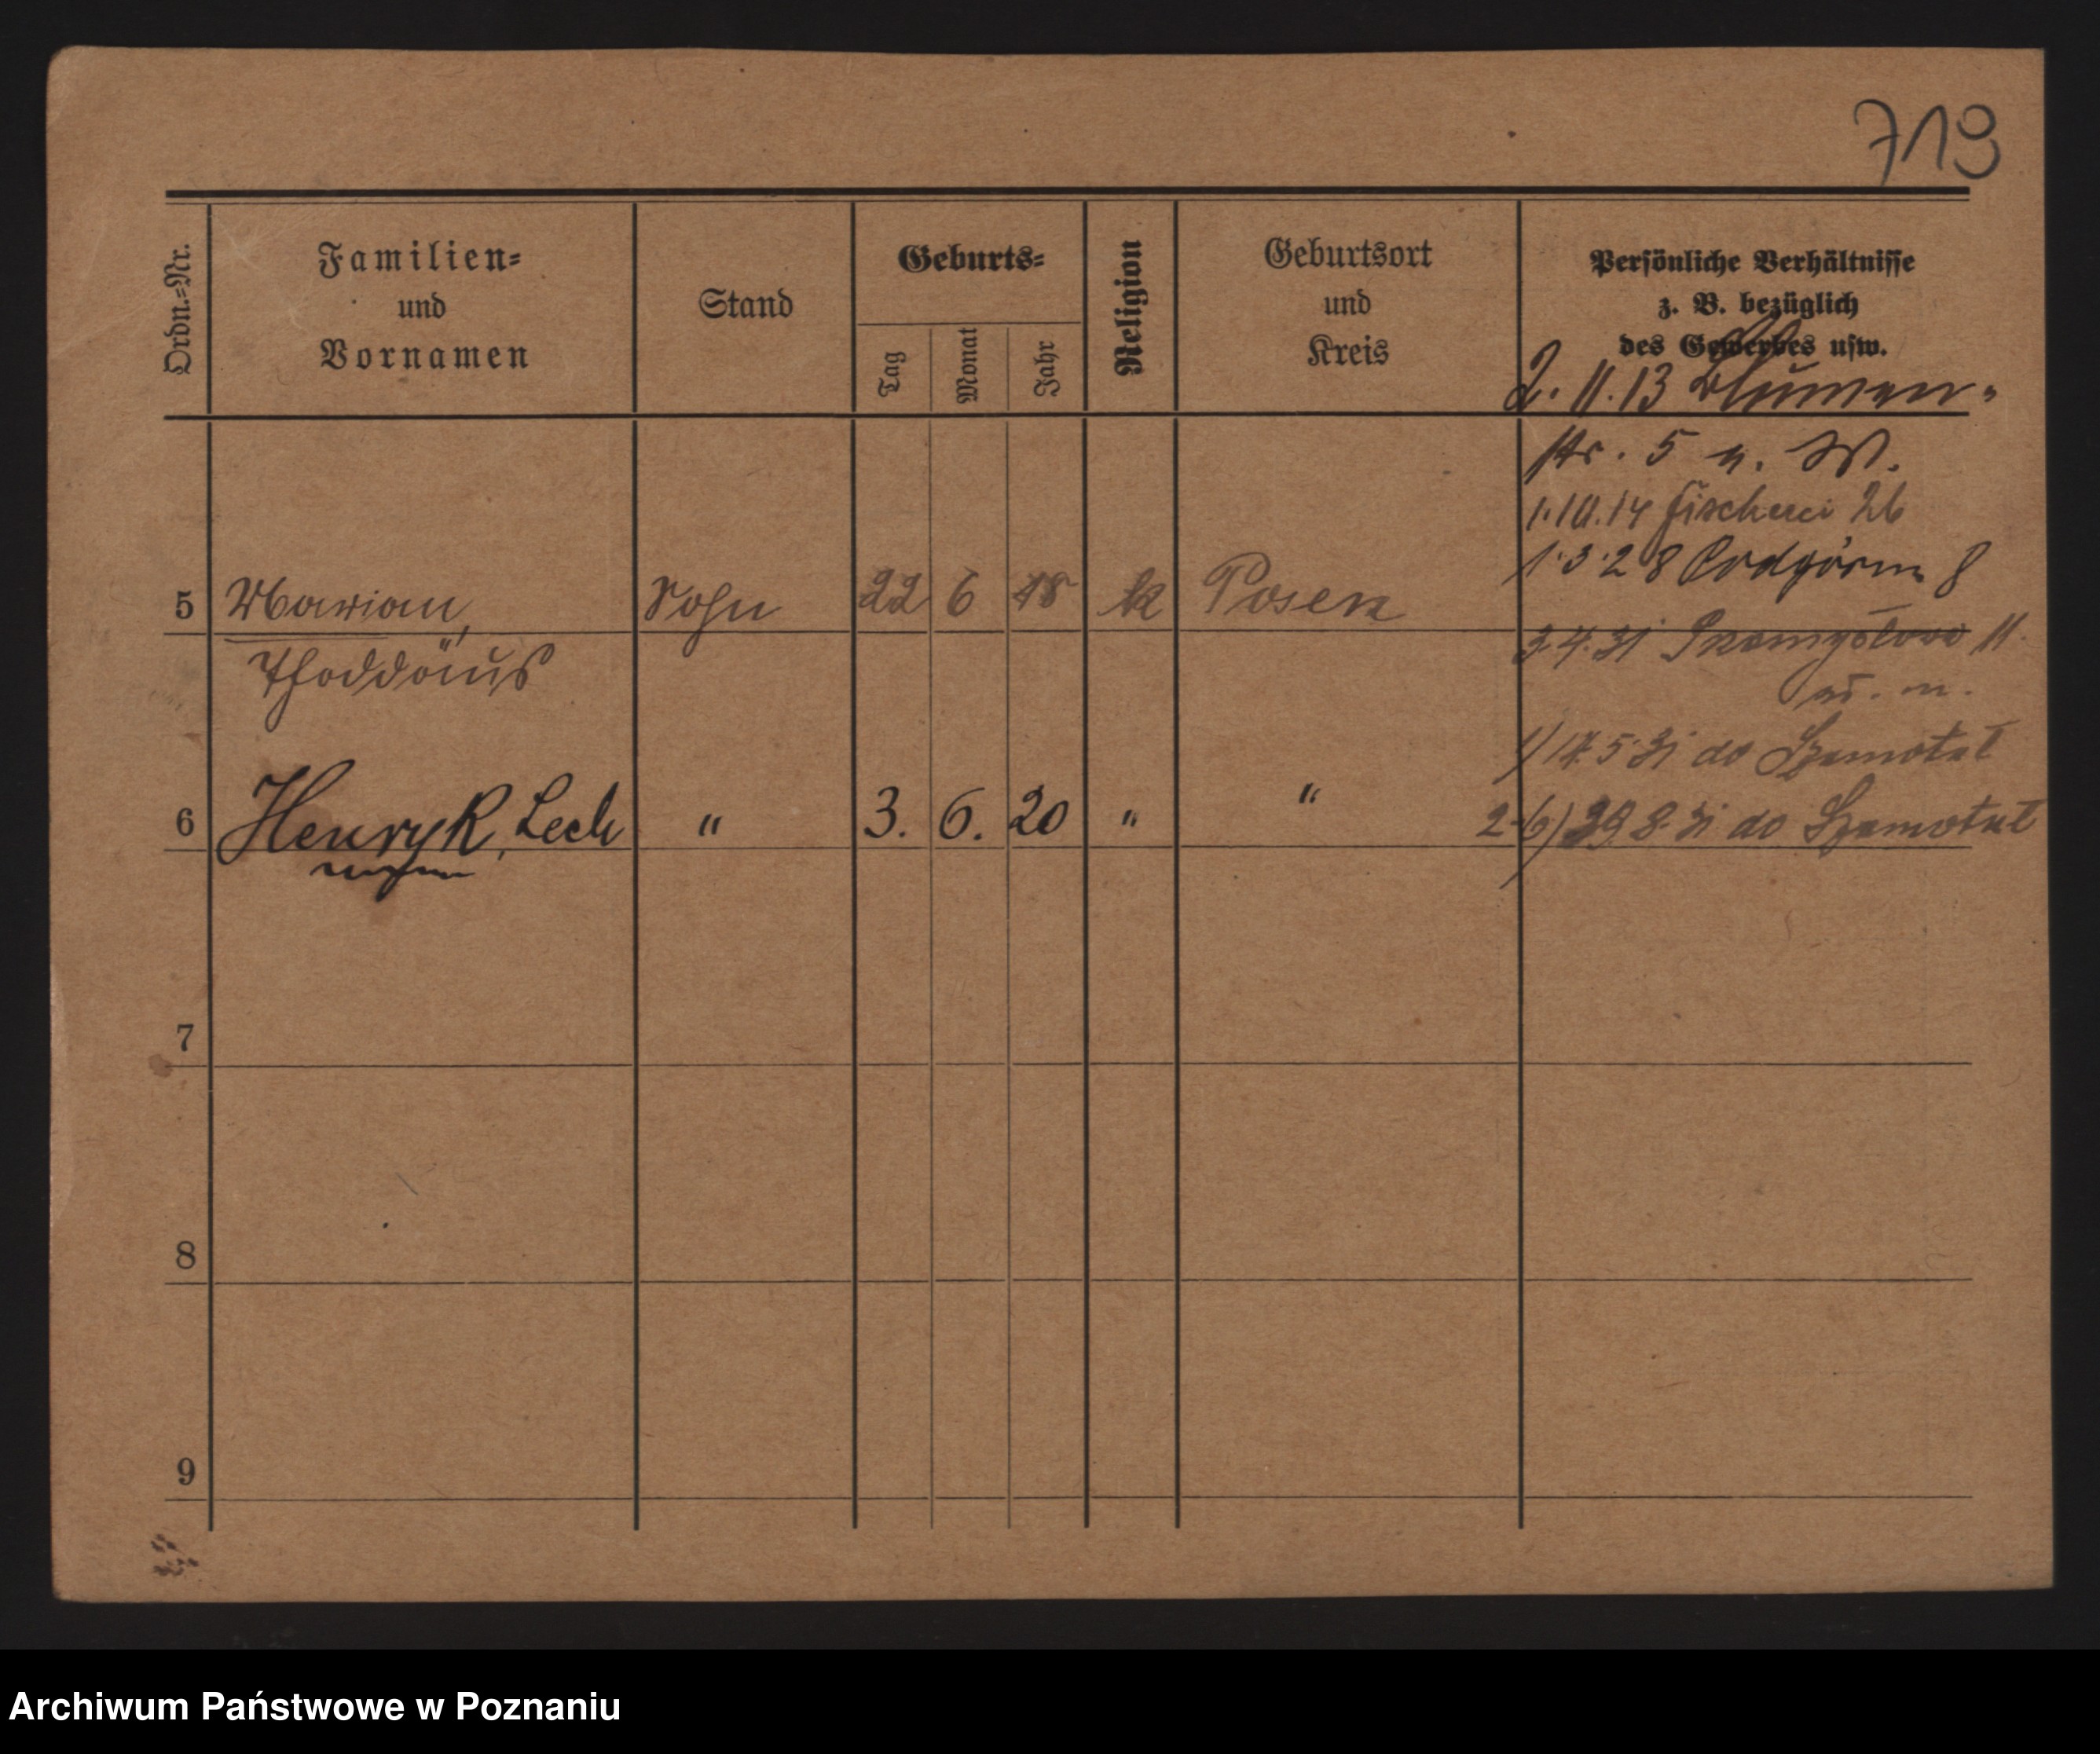 719
Ordn.=Nr.
Familien=
und
Vornamen
Stand
Geburts=
Tag
Monat
Jahr
Religion
Geburtsort
und
Kreis
Persönliche Verhältnisse
z. B. bezüglich
des Gewerbes usw.
2. 11. 13 Blumen-
str. 5 n. W.
1.10.14 Fischerei 26
1.3.28 Podgórna 8
5 Marian, Sohn 22 6 18 k Posen
Thaddäus
3.4.31 Przemysłowa 11.
m.
1) 17.5.31 do Szamotuł
6 Henryk, Lech " 3. 6. 20 " "
2-6) 29.8.31 do Szamotuł
7
8
9
Archiwum Państwowe w Poznaniu